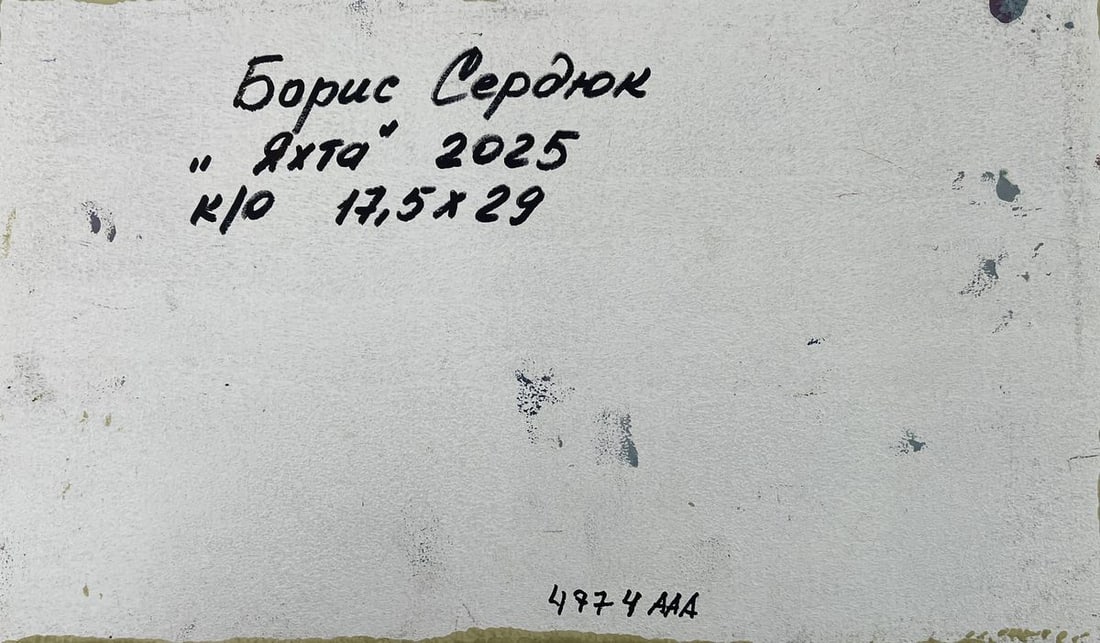 Борис Сердюк
„ Яхта“ 2025
к/о 17,5 х 29
4974 ААА